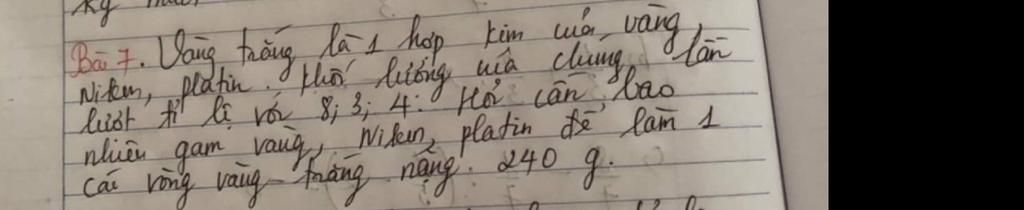 Kỹ
Bài 7. Vàng trắng là 1 hợp kim của vàng,
Niken, platin. Khối lượng của chúng lần
lượt tỉ lệ với 8; 3; 4. Hỏi cần bao
nhiêu gam vàng, Niken, platin để làm 1
cái vòng vàng trắng nặng 240 g.